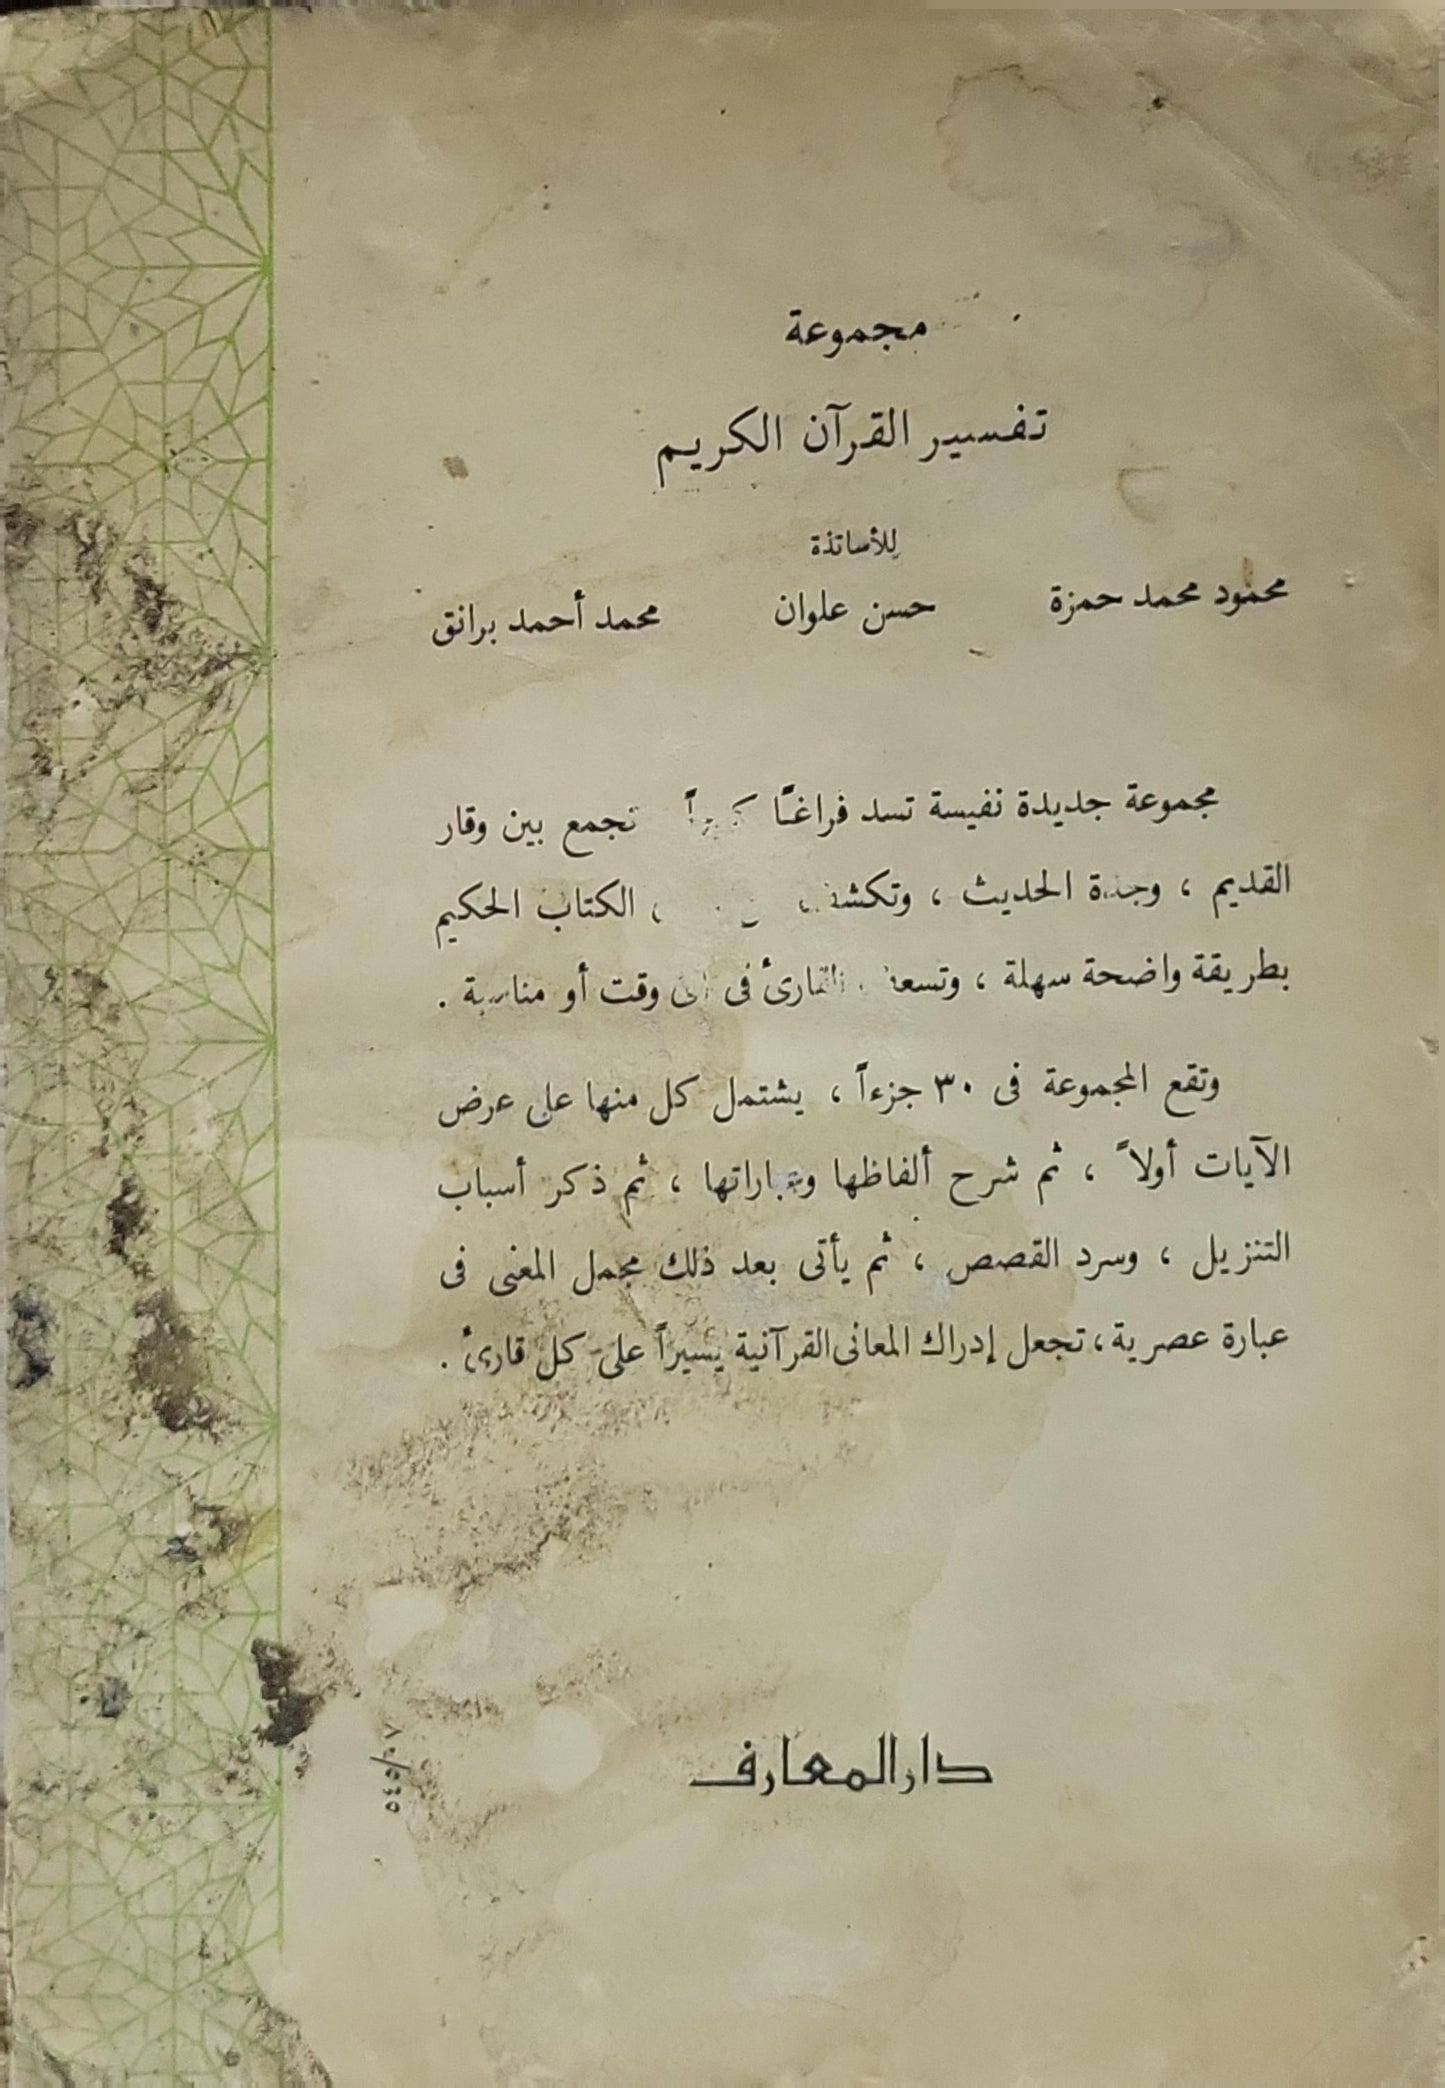 مجموعة
تفسير القرآن الكريم
للأساتذة
محمود محمد حمزة حسن علوان محمد أحمد برانق
مجموعة جديدة نفيسة تسد فراغاً كبيراً تجمع بين وقار
القديم ، وجدة الحديث ، وتكشف الكتاب الحكيم
بطريقة واضحة سهلة ، وتسعف القارئ فى أى وقت أو مناسبة .
وتقع المجموعة فى ٣٠ جزءاً ، يشتمل كل منها على عرض
الآيات أولاً ، ثم شرح ألفاظها وعباراتها ، ثم ذكر أسباب
التنزيل ، وسرد القصص ، ثم يأتى بعد ذلك مجمل المعنى فى
عبارة عصرية ، تجعل إدراك المعانى القرآنية يسيراً على كل قارئ .
دار المعارف